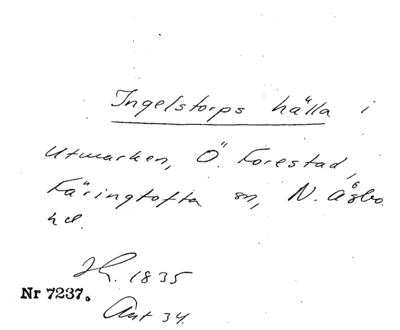 Ingelstorps hälla i
Utmarken, Ö. Forestad,
Färingtofta sn, N. Åsbo
hd.
Jh. 1835
Nr 7237.
Ant 34.